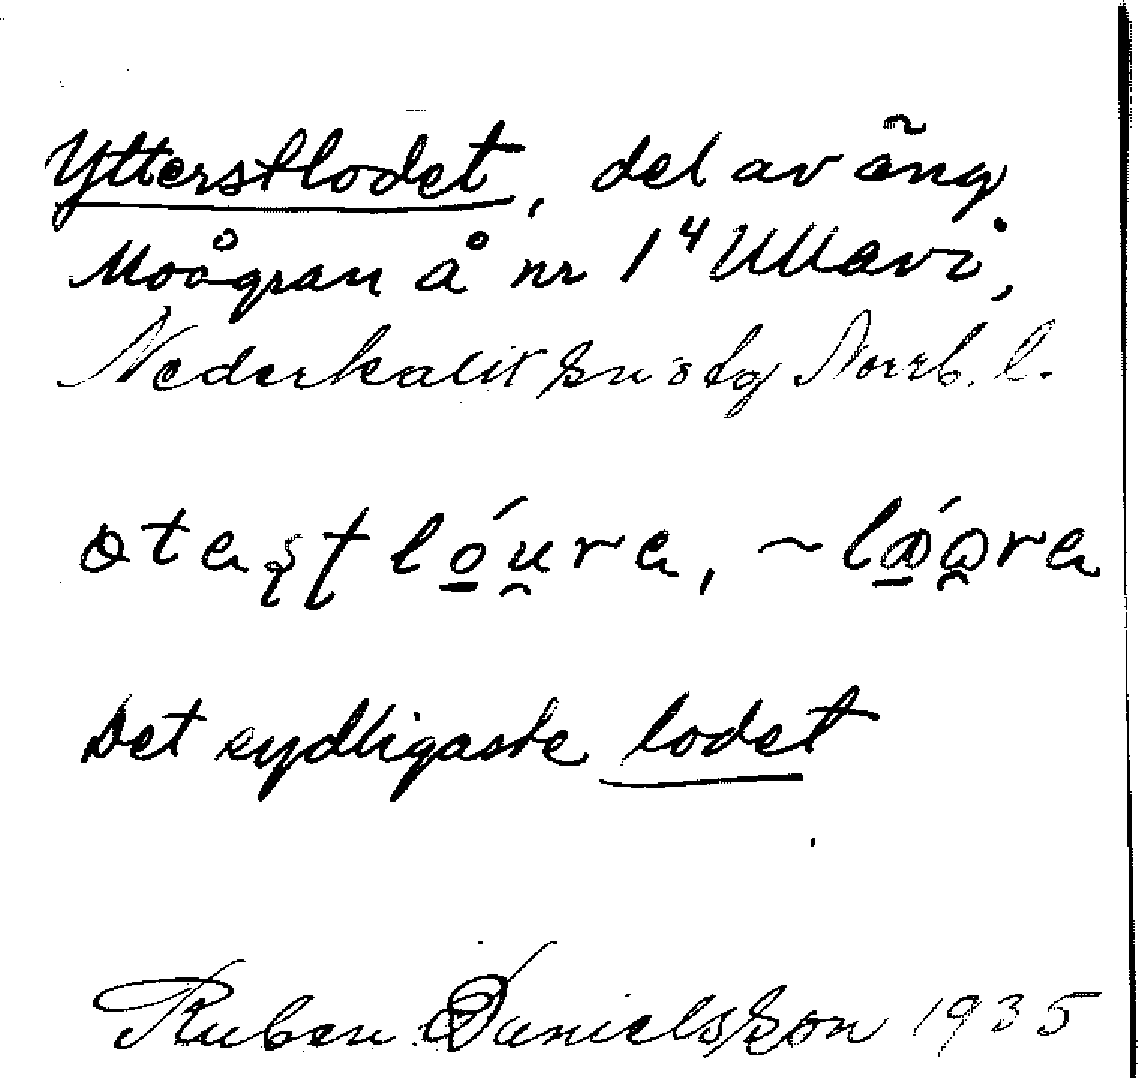 Ytterstlodet, del av äng
Moågran å nr 1⁴ Ullavi,
Nederkalix sn o tg Norrb. l.
ɷtaʂʈ lo̠´u̯ra, ~
Det sydligaste lodet
Ruben Danielsson 1935